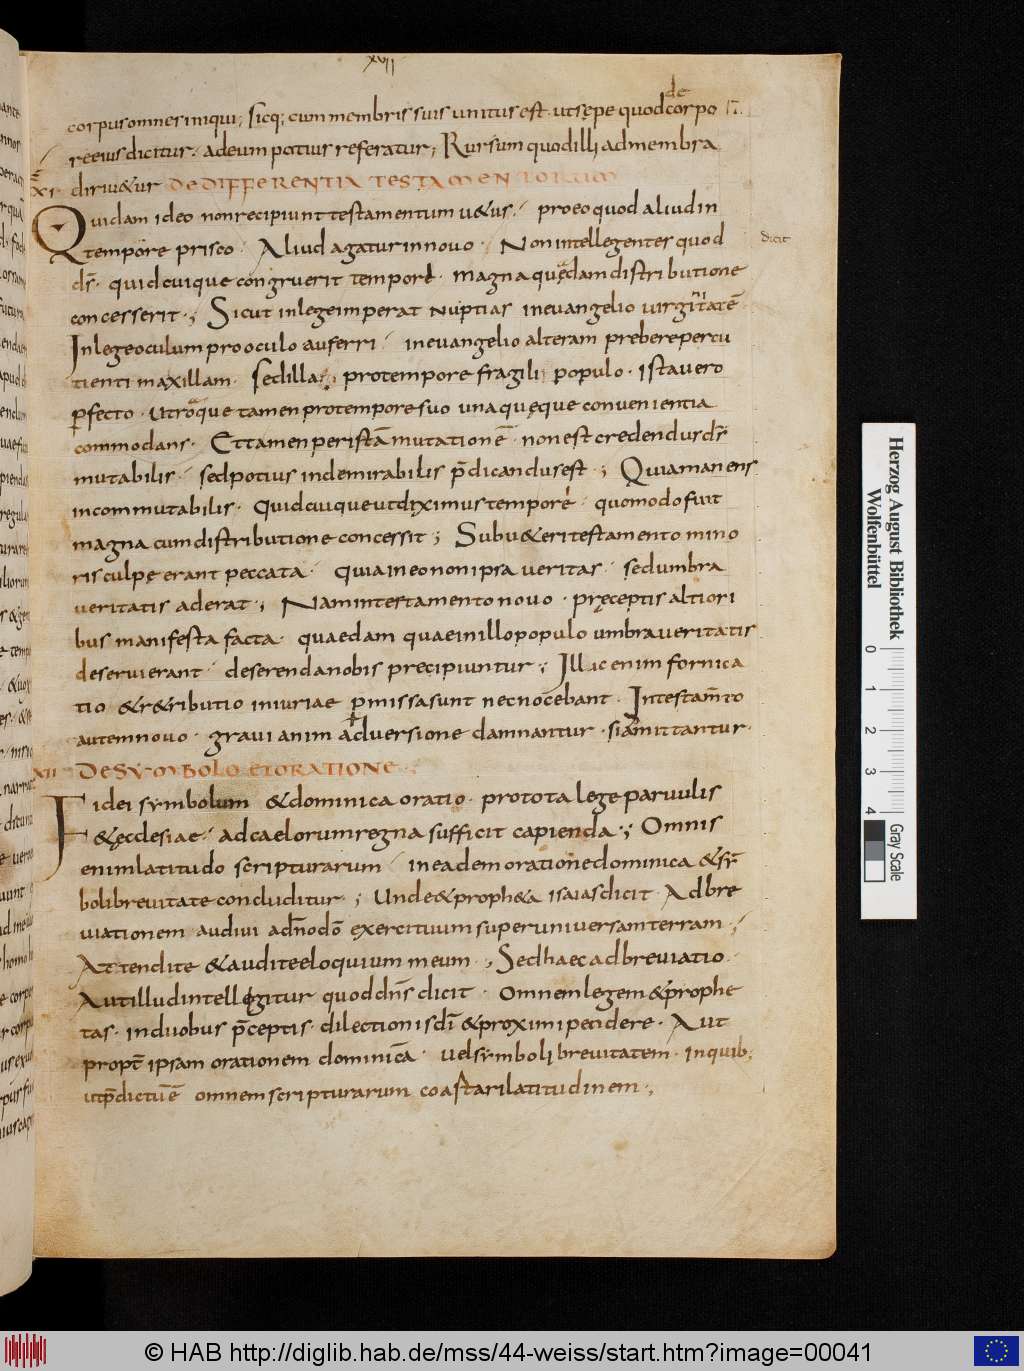 XVII
corpus omnes iniqui; Sicq; cum membris suis unitus est. ut sępe quod de corpo
re eius dicitur. ad eum potius referatur; Rursum quod illi ad membra
XI diriu&ur DE DIFFERENTIA TESTAMENTORUM
Quidam ideo non recipiunt testamentum u&us. pro eo quod aliud in
tempore prisco. Aliud agatur in novo. Non intellegentes quod
dicit
d̄s. quid cuique congruerit tempori. magna quędam distributione
concesserit.; Sicut in lege imperat nuptias in evangelio virginitatē
In lege oculum pro oculo auferri in evangelio alteram prebere percu
tienti maxillam. Sed illa pro tempore fragili populo. Ista vero
ꝑfecto. utroque tamen pro tempore suo unaquęque convenientia
commodans. Et tamen per istā mutationē. non est credendus d̄s
mutabilis sed potius inde mirabilis p̄dicandus est.; Quia manens
incommutabilis. Quid cuique ut diximus tempore. quomodo fuit
magna cum distributione concessit; Sub u&eri testamento mino
ris culpe erant peccata. Quia in eo non ipsa veritas. sed umbra
veritatis aderat.; Nam in testamento novo. pręceptis altiori
bus manifesta facta. quaedam quae in illo populo umbra veritatis
deservierant deserenda nobis precipiuntur; Illic enim fornica
tio &r&ributio iniuriae ꝑmissa sunt nec nocebant. In testam̄to
autem novo. gravi animadversione damnantur. si amittantur.
XII DE SYMBOLO ET ORATIONE.
Fidei symbolum &dominica oratio. pro tota lege parvulis
&ęcclesiae. ad caelorum regna sufficit capienda.; Omnis
enim latitudo scripturarum in eadem oratione dominica &sȳ
boli brevitate concluditur.; Unde&proph&a Isaias dicit. Adbre
viationem audivi ad̄nodō exercituum super universam terram.
Attendite &audite eloquium meum.; Sed haec adbreviatio
Aut illud intellegitur quod dn̄s dicit. Omnem legem &prophe
tas. in duobus p̄ceptis. dilectionis dī &proximi pendere. Aut
propt̄ ipsam orationem dominicā. vel symboli brevitatem. in quib;
ut p̄dictū ē omnem scripturarum coastari latitudinem.;
Herzog August Bibliothek
Wolfenbüttel
0 1 2 3 4
Gray Scale
© HAB http://diglib.hab.de/mss/44-weiss/start.htm?image=00041